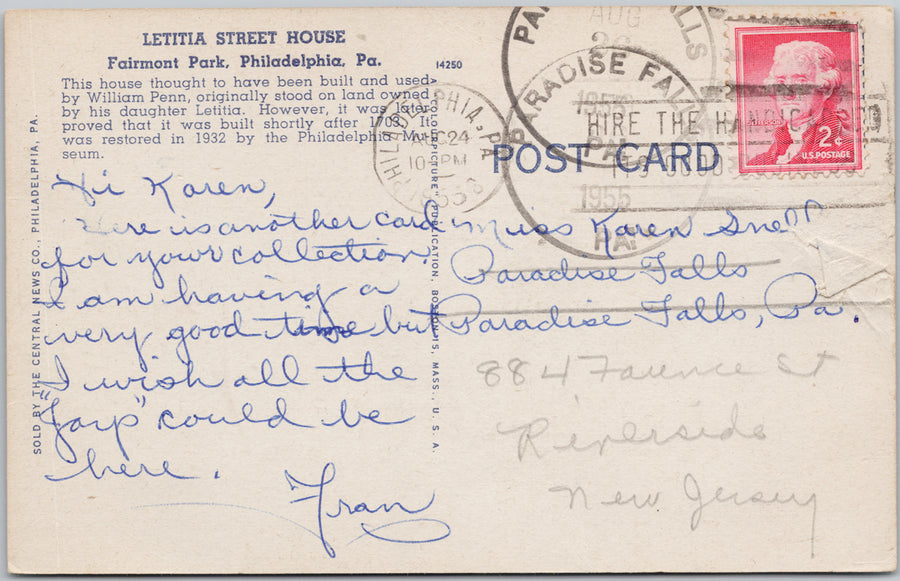 LETITIA STREET HOUSE
Fairmont Park, Philadelphia, Pa.
14250
This house thought to have been built and used
by William Penn, originally stood on land owned
by his daughter Letitia. However, it was later
proved that it was built shortly after 1703. It
was restored in 1932 by the Philadelphia Mu-
seum.
POST CARD
SOLD BY THE CENTRAL NEWS CO., PHILADELPHIA, PA.
PUBLICATION, BOSTON 15, MASS., U. S. A.
Hi Karen,
Here is another card
for your collection.
I am having a
very good time but
I wish all the
"Jarp" could be
here.
Fran
Miss Karen Snell
Paradise Falls
Paradise Falls, Pa.
8847 St
Riverside
New Jersey
PHILADELPHIA, PA.
AUG 24
10 PM
1955
PARADISE FALLS
PA.
AUG
26
1955
HIRE THE HANDICAPPED
2¢
U.S. POSTAGE